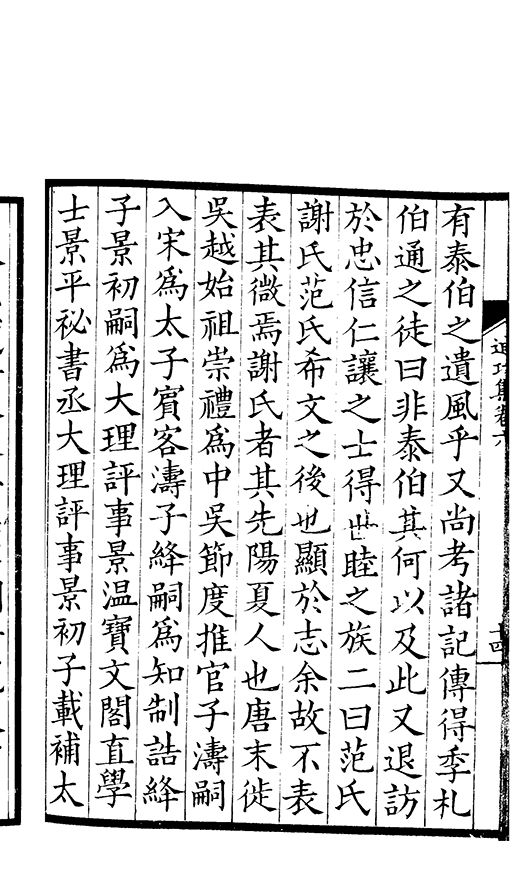 有泰伯之遺風乎又尚考諸記傳得季札
伯通之徒曰非泰伯其何以及此又退訪
於忠信仁讓之士得世睦之族二曰范氏
謝氏范氏希文之後也顯於志余故不表
表其微焉謝氏者其先陽夏人也唐末徙
吳越始祖崇禮爲中吳節度推官子濤嗣
入宋爲太子賓客濤子絳嗣爲知制誥絳
子景初嗣爲大理評事景温寶文閣直學
士景平祕書丞大理評事景初子載補太